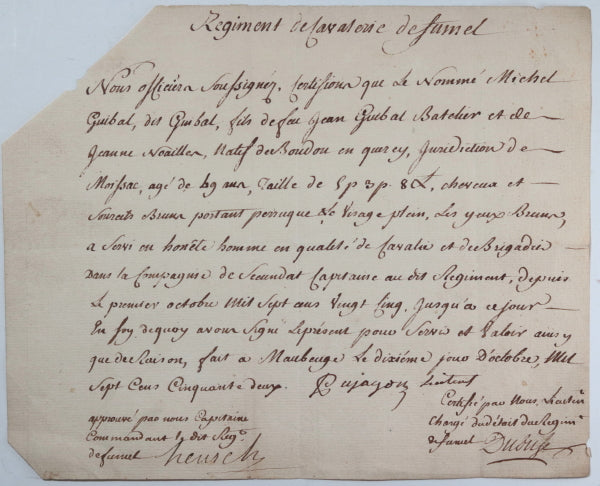 Regiment de Cavalerie de fumel
Nous officiers Soussignéz, Certifions que Le Nommé Michel
Guibal, dit Guibal, fils de feu Jean Guibal Batelier et de
Jeanne Noailles, Natif de Boudou en quercy, Juridiction de
Moissac, agé de 49 ans, Taille de 5 p 3 p. 8 L, cheveux et
Sourcils Bruns portant perruque Le Visage plein, Les yeux Bruns,
a Servi en honête homme en qualité de Cavalier et de Brigadier
Dans la Compagnie de Secundat Capitaine au dit Regiment, depuis
Le premier octobre Mil Sept cens Vingt Cinq, Jusqu'a ce jour
En foy de quoy avons Signé Le présent pour Servir et Valoir ainsy
que de Raison, fait a Maubeuge Le dixiéme jour D'octobre, Mil
Sept Cens Cinquante deux.
Certifié par Nous,
approuvé par nous Capitaine
Chargé du détail du Regim.t
Commandant le dit Reg.t
de fumel
de fumel